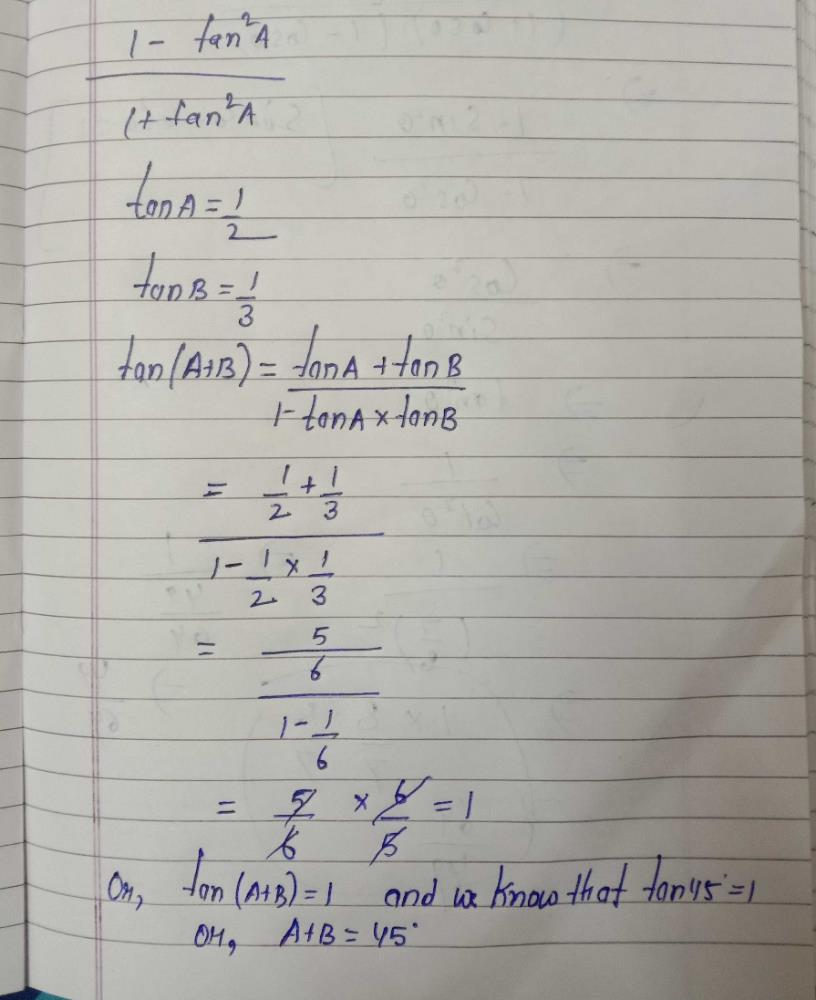 1 - tan²A
1 + tan²A
tanA = 1/2
tanB = 1/3
tan(A+B) = tanA + tanB
1 - tanA × tanB
= 1/2 + 1/3
1 - 1/2 × 1/3
= 5/6
1 - 1/6
= 5/6 × 6/5 = 1
Or, tan (A+B) = 1 and we know that tan45° = 1
or, A+B = 45°